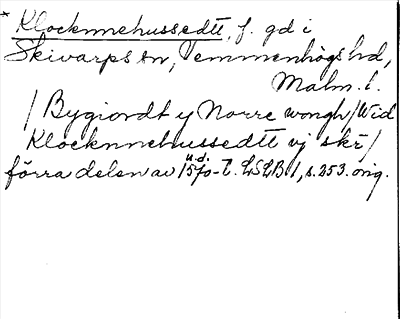 * Klocknnehussedtt, f. gd i
Skivarps sn, Vemmenhögs hd,
Malm. l.
/ Bygiordt y Norre wongh / Wid
Klocknnehussedtt vj skr /
förra delen av u.d. 1570-t. LSLB 1, s. 253. orig.